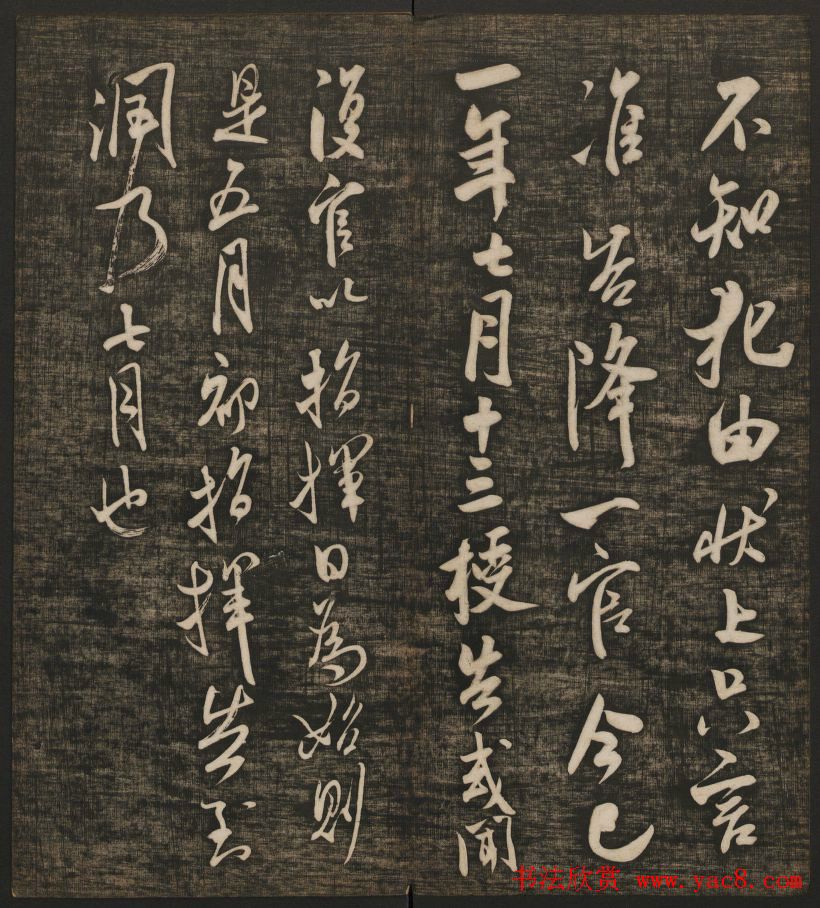 不知犯由状上只言
准告降一官今已
一年七月十三授告或闻
復官以指揮日為始則
是五月初指揮告到
润乃七月也
书法欣赏 www.yac8.com